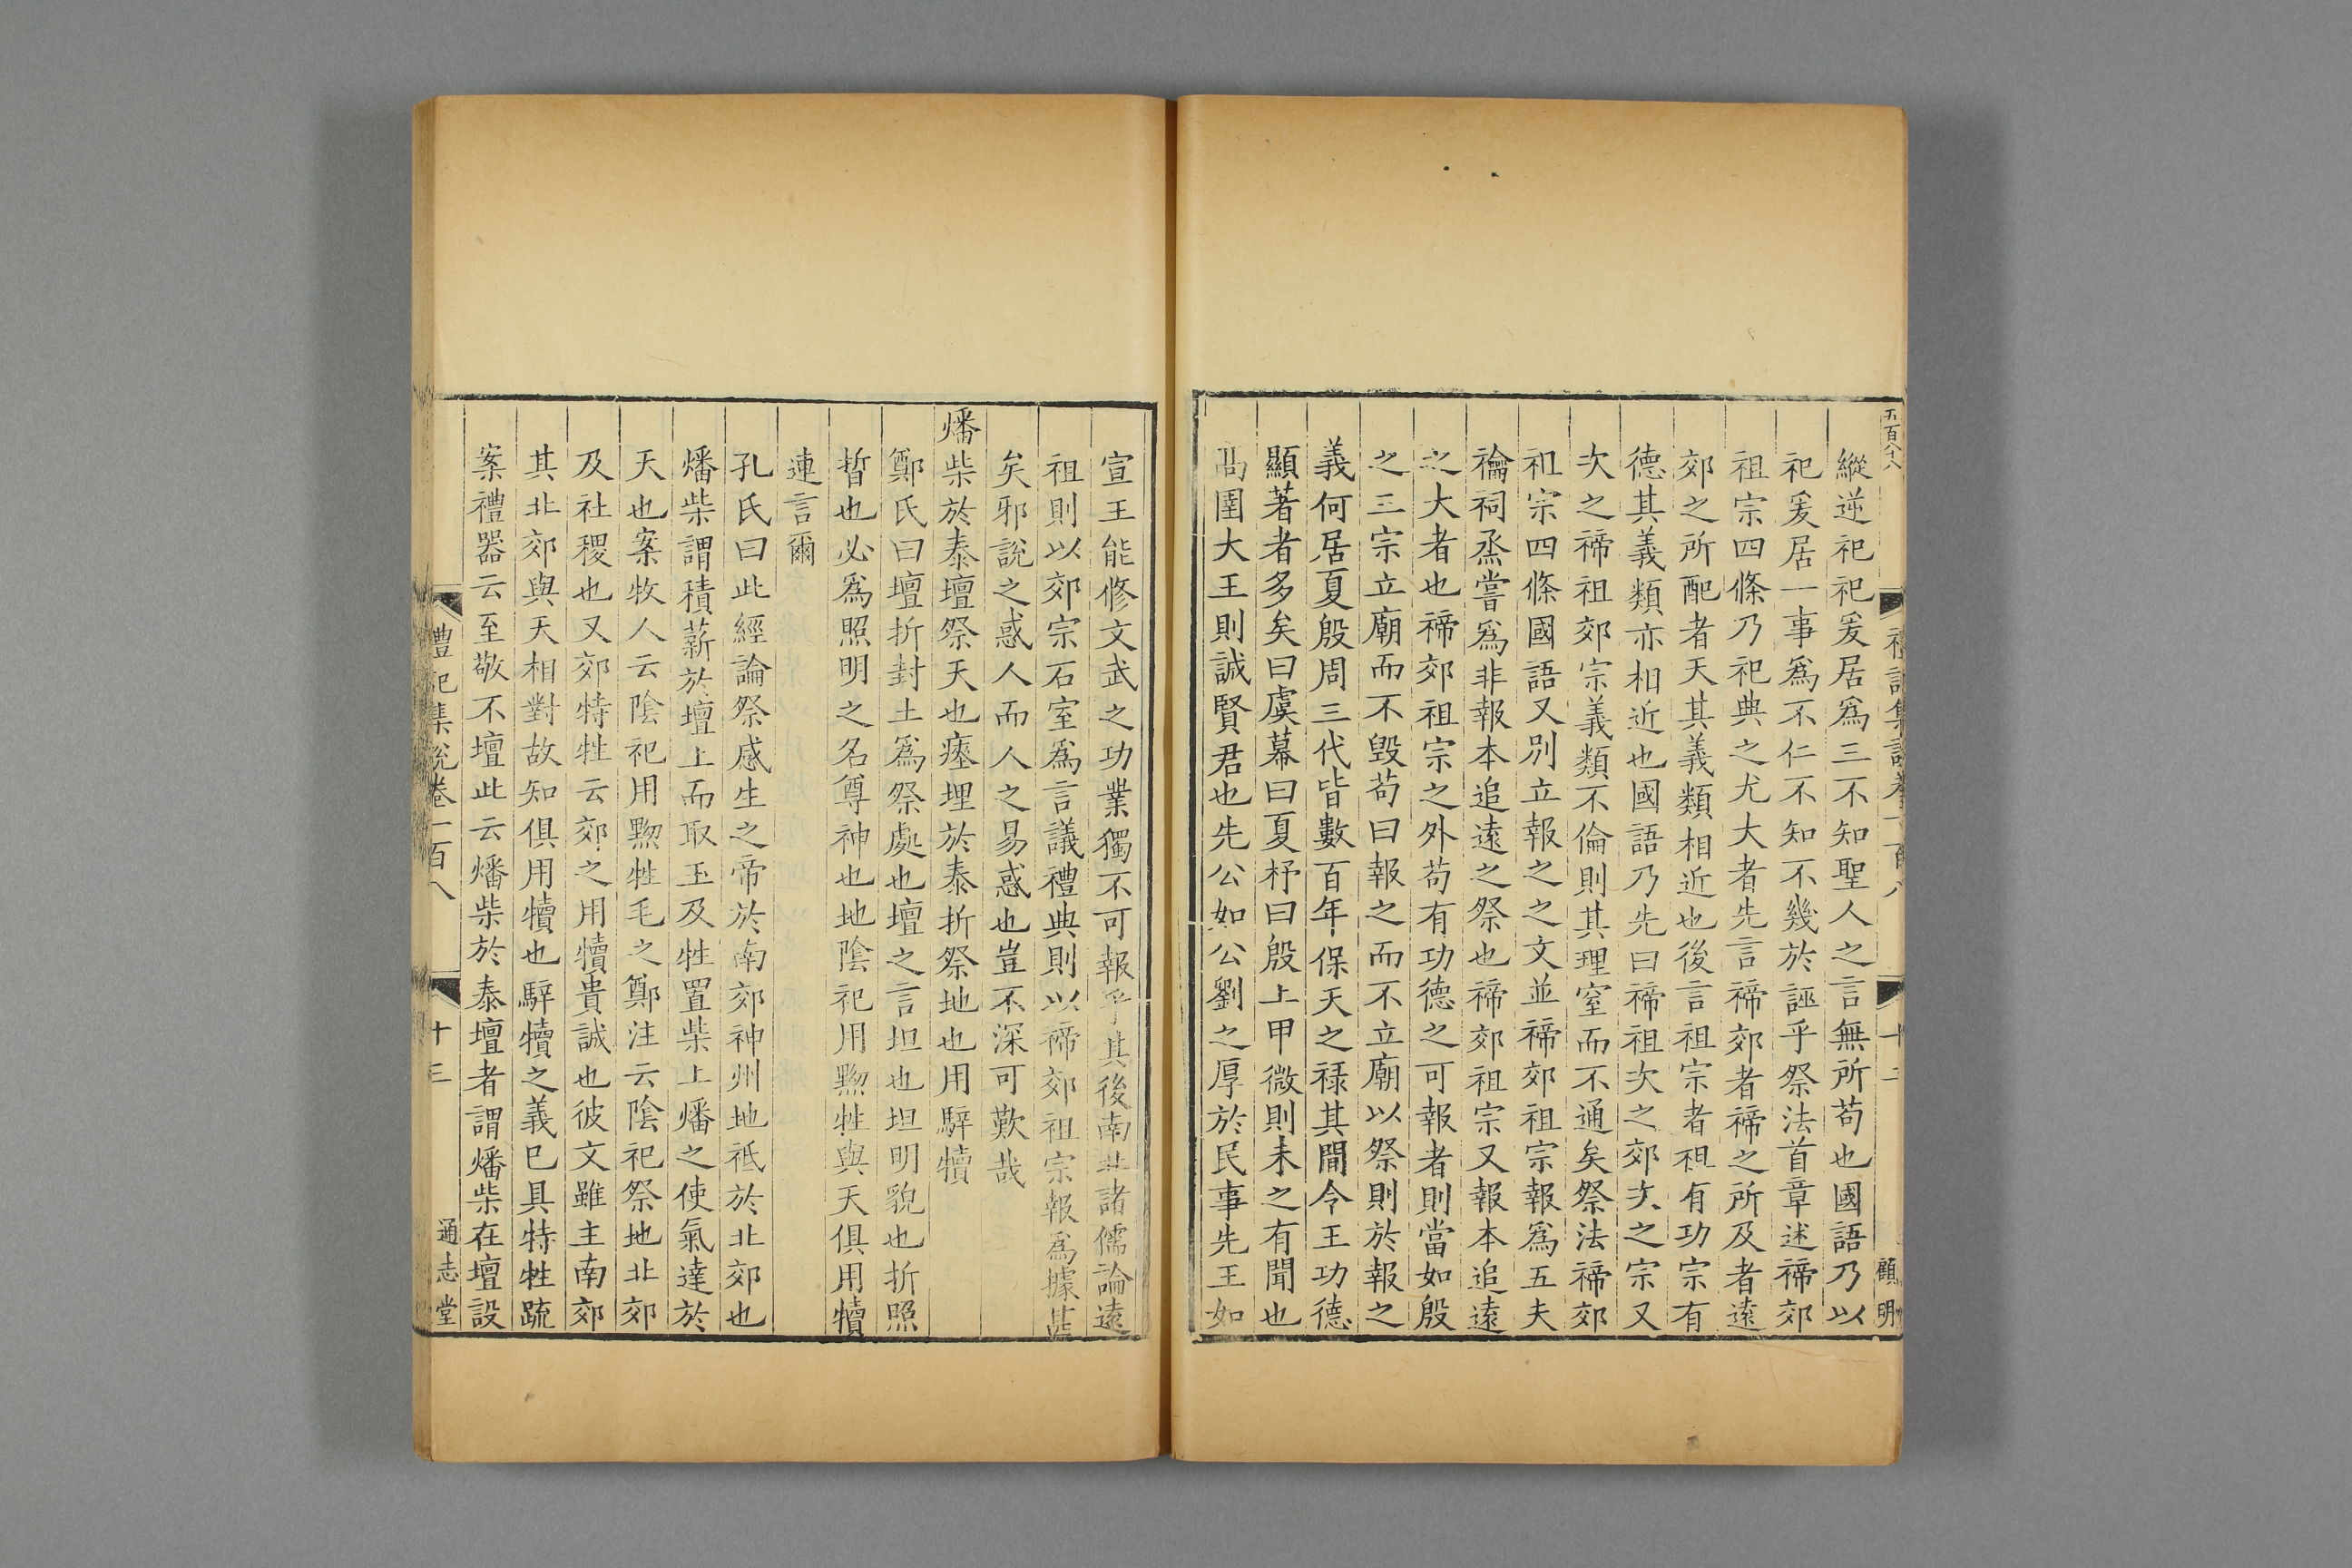 五百六十八
禮記集說卷一百八
十二
顧明
縱逆祀祀爰居爲三不知聖人之言無所苟也國語乃以
祀爰居一事爲不仁不知不幾於誣乎祭法首章述禘郊
祖宗四條乃祀典之尤大者先言禘郊者禘之所及者遠
郊之所配者天其義類相近也後言祖宗者祖有功宗有
德其義類亦相近也國語乃先曰禘祖次之郊次之宗又
次之禘祖郊宗義類不倫則其理窒而不通矣祭法禘郊
祖宗四條國語又別立報之之文並禘郊祖宗報爲五夫
禴祠烝嘗爲非報本追遠之祭也禘郊祖宗又報本追遠
之大者也禘郊祖宗之外苟有功德之可報者則當如殷
之三宗立廟而不毀苟曰報之而不立廟以祭則於報之
義何居夏殷周三代皆數百年保天之祿其間令王功德
顯著者多矣曰虞幕曰夏杼曰殷上甲微則未之有聞也
高圉大王則誠賢君也先公如公劉之厚於民事先王如
宣王能修文武之功業獨不可報乎其後南北諸儒論遠
祖則以郊宗石室爲言議禮典則以禘郊祖宗報爲據甚
矣邪說之惑人而人之易惑也豈不深可歎哉
燔柴於泰壇祭天也瘞埋於泰折祭地也用騂犢
鄭氏曰壇折封土爲祭處也壇之言坦也坦明貌也折照
晢也必爲照明之名尊神也地陰祀用黝牲與天俱用犢
連言爾
孔氏曰此經論祭感生之帝於南郊神州地祇於北郊也
燔柴謂積薪於壇上而取玉及牲置柴上燔之使氣達於
天也案牧人云陰祀用黝牲毛之鄭注云陰祀祭地北郊
及社稷也又郊特牲云郊之用犢貴誠也彼文雖主南郊
其北郊與天相對故知俱用犢也騂犢之義已具特牲疏
案禮器云至敬不壇此云燔柴於泰壇者謂燔柴在壇設
禮記集說卷一百八
十三
通志堂